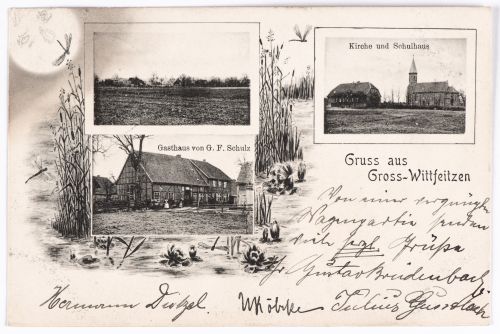 Kirche und Schulhaus
Gasthaus von G. F. Schulz
Gruss aus
Gross-Wittfeitzen
Von einer vergnügten
Wagenpartie senden
viele herzl. Grüße
Gustav Breidenbach
Hermann
Julius